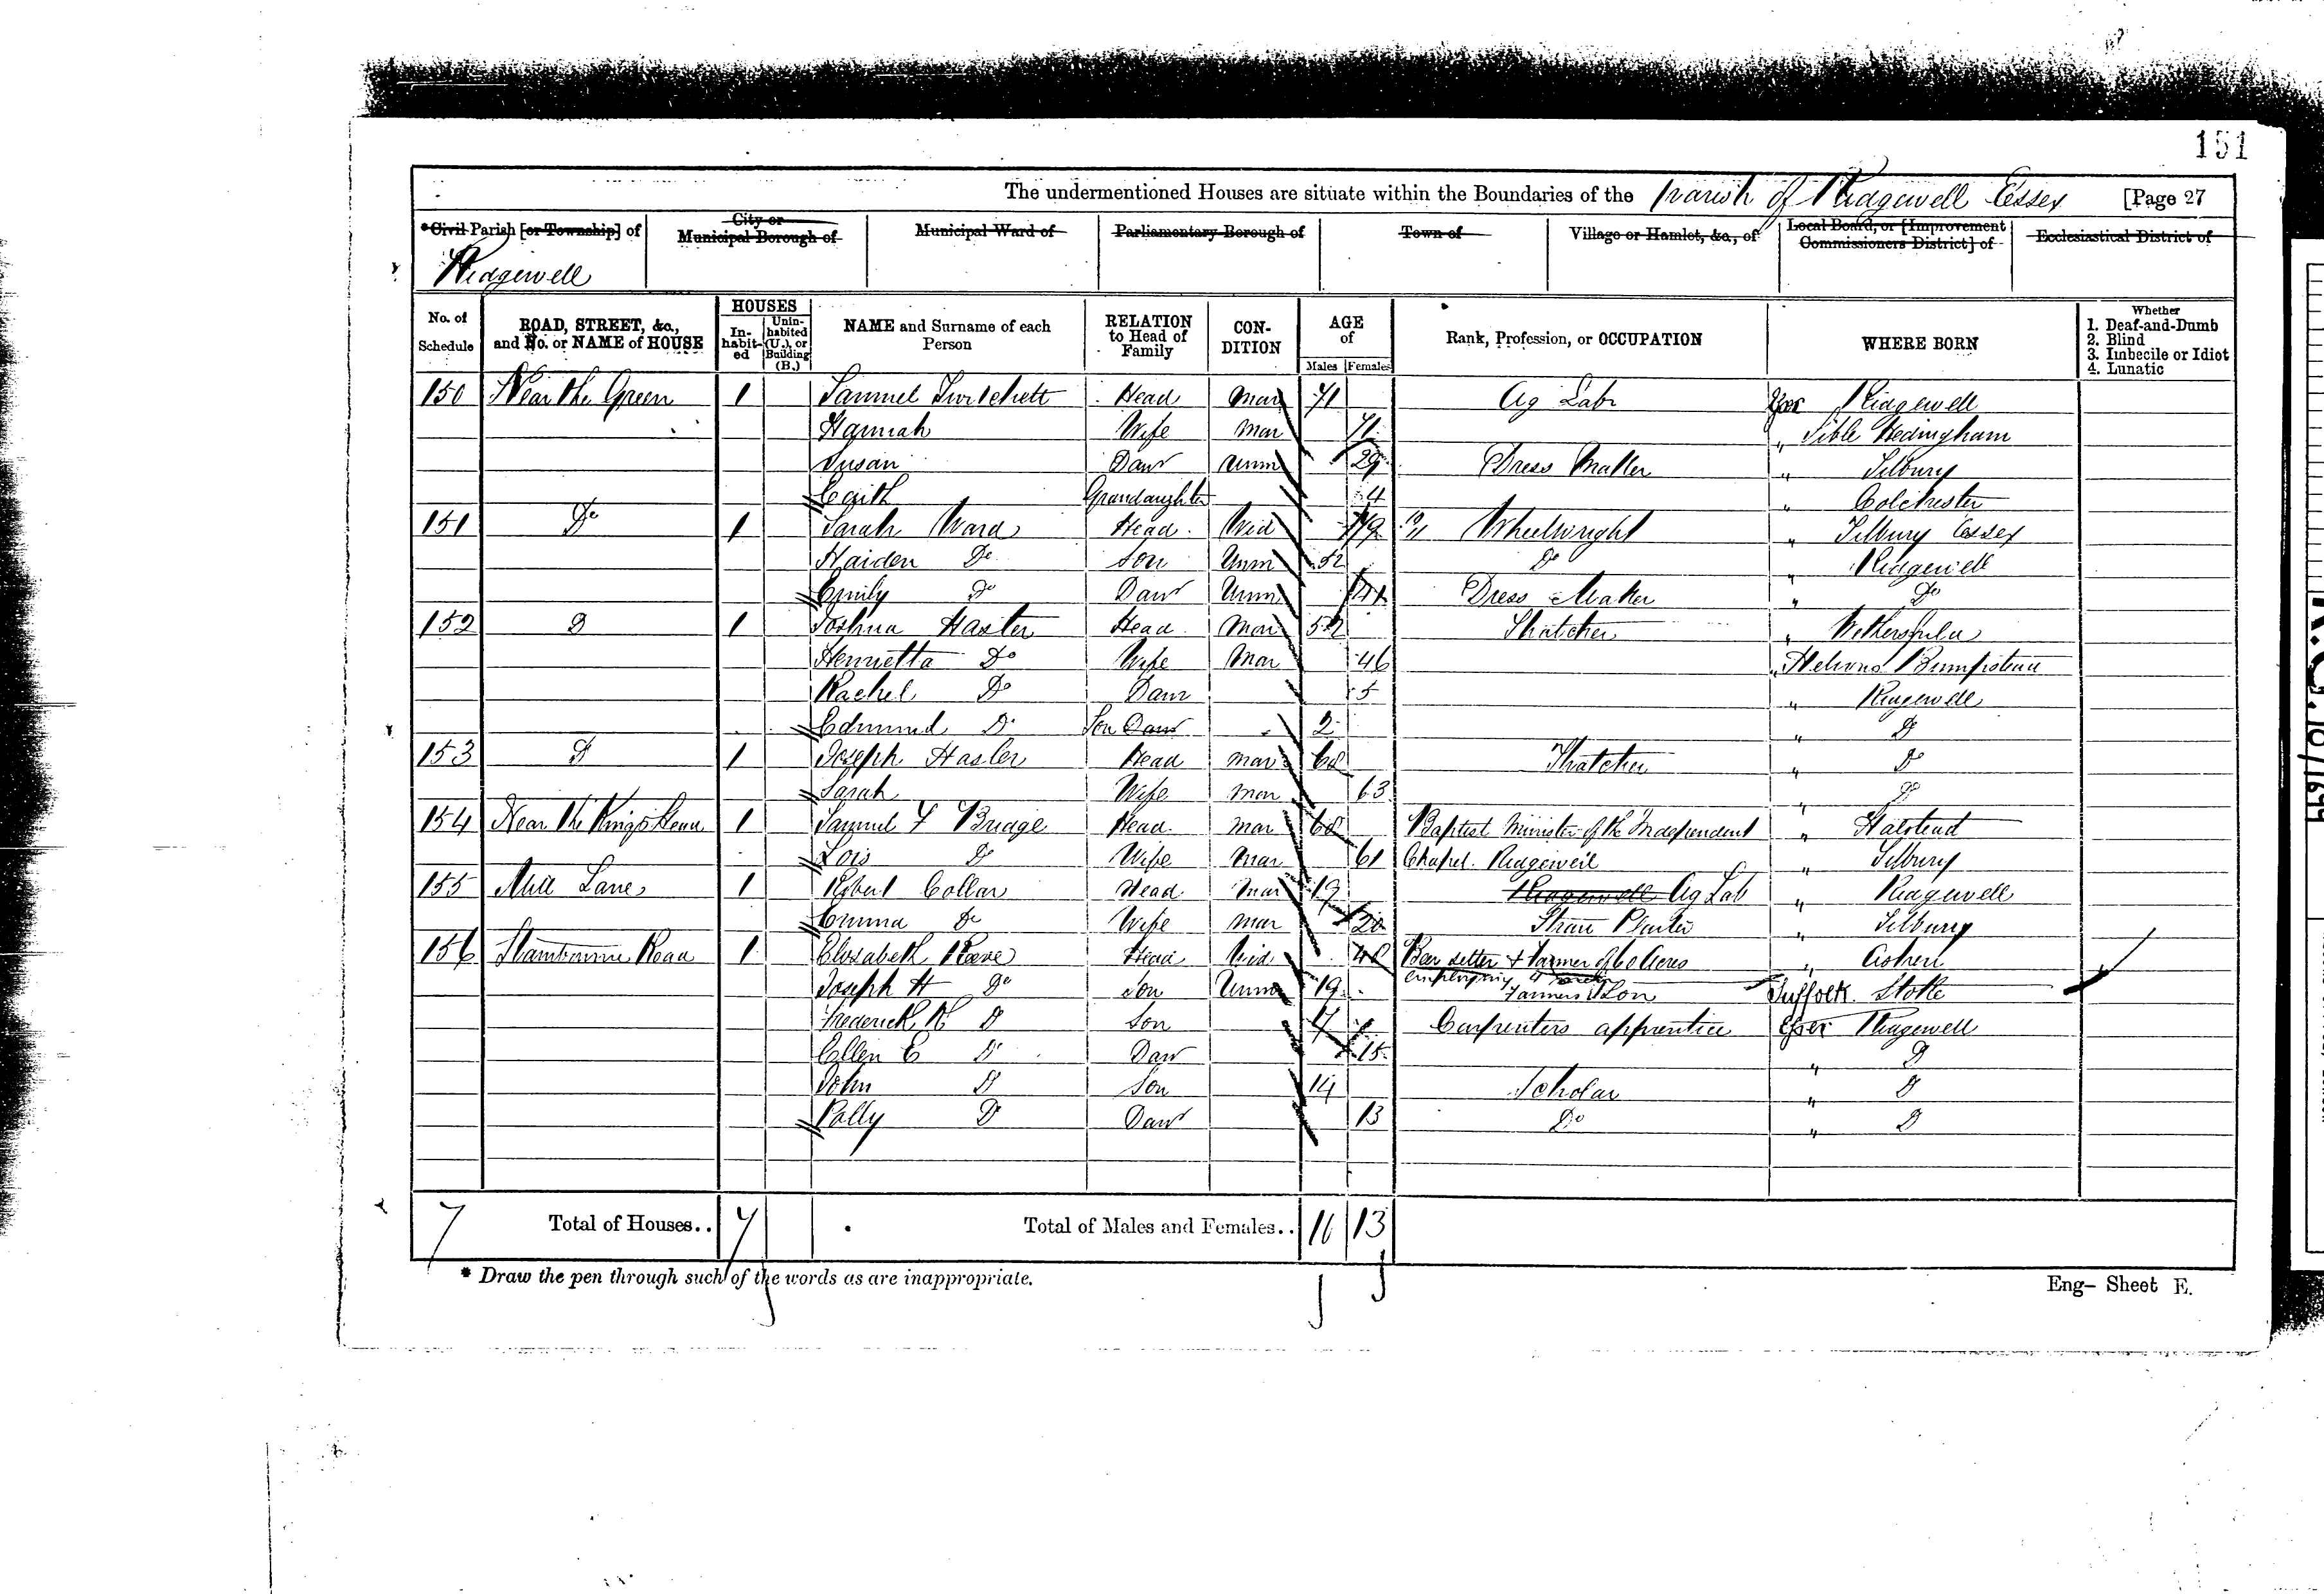 151
The undermentioned Houses are situate within the Boundaries of the Parish of Ridgewell Essex [Page 27
*Civil Parish [or Township] of City or Municipal Borough of Municipal Ward of Parliamentary Borough of Town of Village or Hamlet, &c., of Local Board, or [Improvement Commissioners District] of Ecclesiastical District of
Ridgewell
No. of Schedule ROAD, STREET, &c., and No. or NAME of HOUSE HOUSES In-habit-ed Unin-habited (U.), or Building (B.) NAME and Surname of each Person RELATION to Head of Family CON-DITION AGE of Males Females Rank, Profession, or OCCUPATION WHERE BORN Whether 1. Deaf-and-Dumb 2. Blind 3. Imbecile or Idiot 4. Lunatic
150 Near the Green 1 Samuel Twitchett Head Mar 71 Ag Labr Essex Ridgewell
Hannah Wife Mar 71 " Sible Hedingham
Susan Daur Unm 29 Dress Maker " Tilbury
Edith Grandaughter 4 " Colchester
151 Do 1 Sarah Ward Head Wid 79 Wheelwright " Tilbury Essex
Haiden Do Son Unm 52 Do " Ridgewell
Emily Do Daur Unm Dress Maker " Do
152 D 1 Joshua Hasler Head Mar 52 Thatcher " Wethersfield
Henrietta Do Wife Mar 46 " Helions Bumpstead
Rachel Do Daur 5 " Ridgewell
Edmund Do Son Daur 2 " D
153 D 1 Joseph Hasler Head Mar 68 Thatcher " D
Sarah Wife Mar 63 " Do
154 Near the Kings Head 1 Samuel Bridge Head Mar 68 Baptist Minister of the Independent " Halstead
Lois Do Wife Mar 61 Chapel Ridgewell " Tilbury
155 Mill Lane 1 Robert Collar Head Mar 19 Ridgewell Ag Lab " Ridgewell
Emma Do Wife Mar 20 Straw Plaiter " Tilbury
156 Stambourne Road 1 Elizabeth Head Wid 48 Farmer of 60 Acres " Ashen
employing 4
Joseph H Do Son Unm 19 Farmers Son Suffolk Stoke
Frederick D Son 17 Carpenters apprentice Essex Ridgewell
Ellen E D Daur 15 " D
John D Son 14 Scholar " D
Polly D Daur 13 Do " D
7 Total of Houses.. 7 Total of Males and Females.. 11 13
* Draw the pen through such of the words as are inappropriate.
Eng- Sheet E.